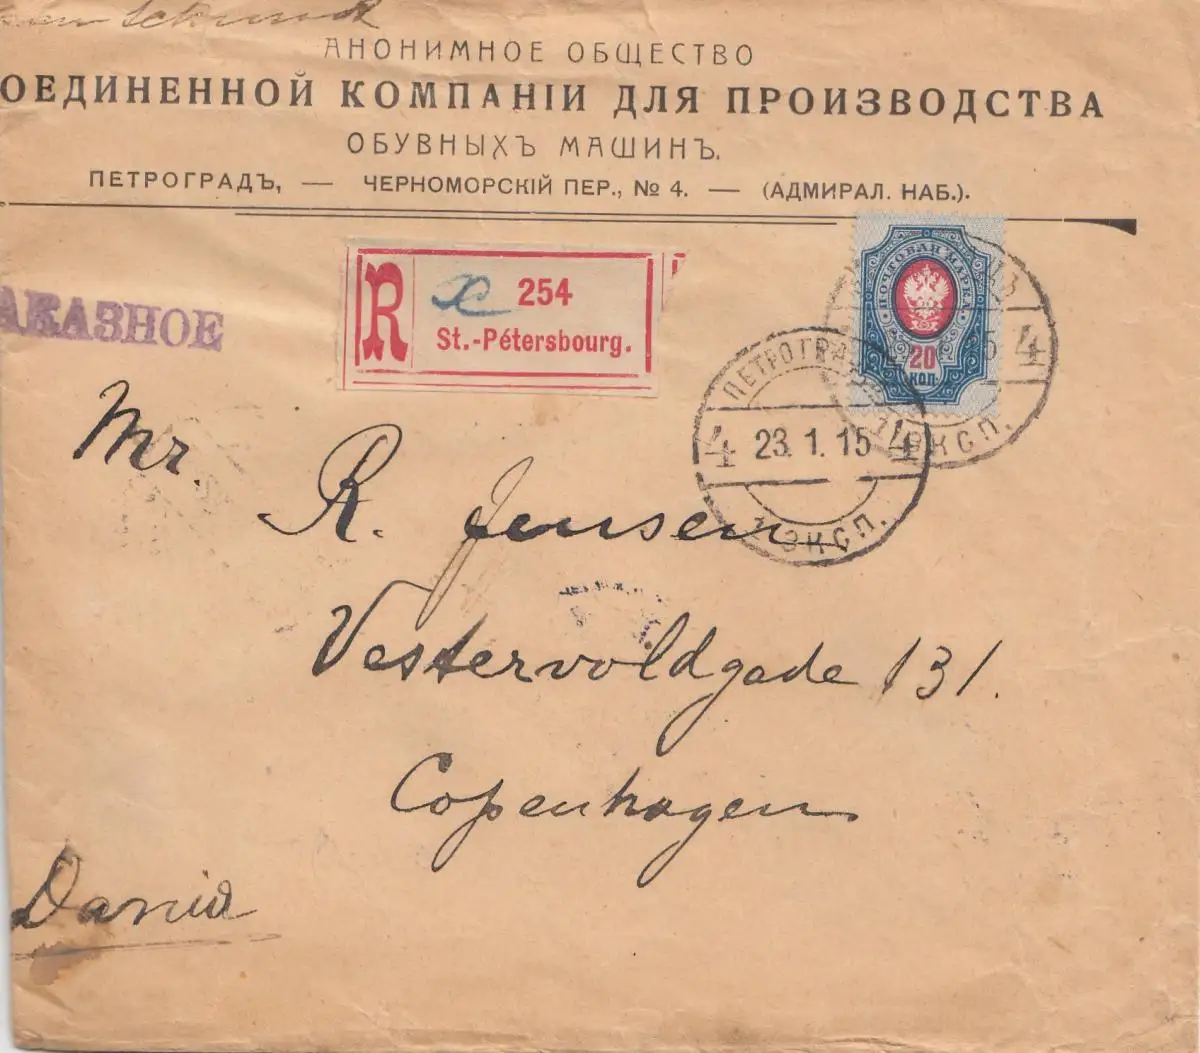 АНОНИМНОЕ ОБЩЕСТВО
ОЕДИНЕННОЙ КОМПАНІИ ДЛЯ ПРОИЗВОДСТВА
ОБУВНЫХЪ МАШИНЪ.
ПЕТРОГРАДЪ, — ЧЕРНОМОРСКІЙ ПЕР., № 4. — (АДМИРАЛ. НАБ.).
АКАЗНОЕ
R 254
St.-Pétersbourg.
ПОЧТОВАЯ МАРКА
20
КОП.
4 ЭКСП.
ПЕТРОГРА
4 23.1.15 4
ЭКСП.
Mr. R. Jensen
Vestervoldgade 131.
Copenhagen
Dania